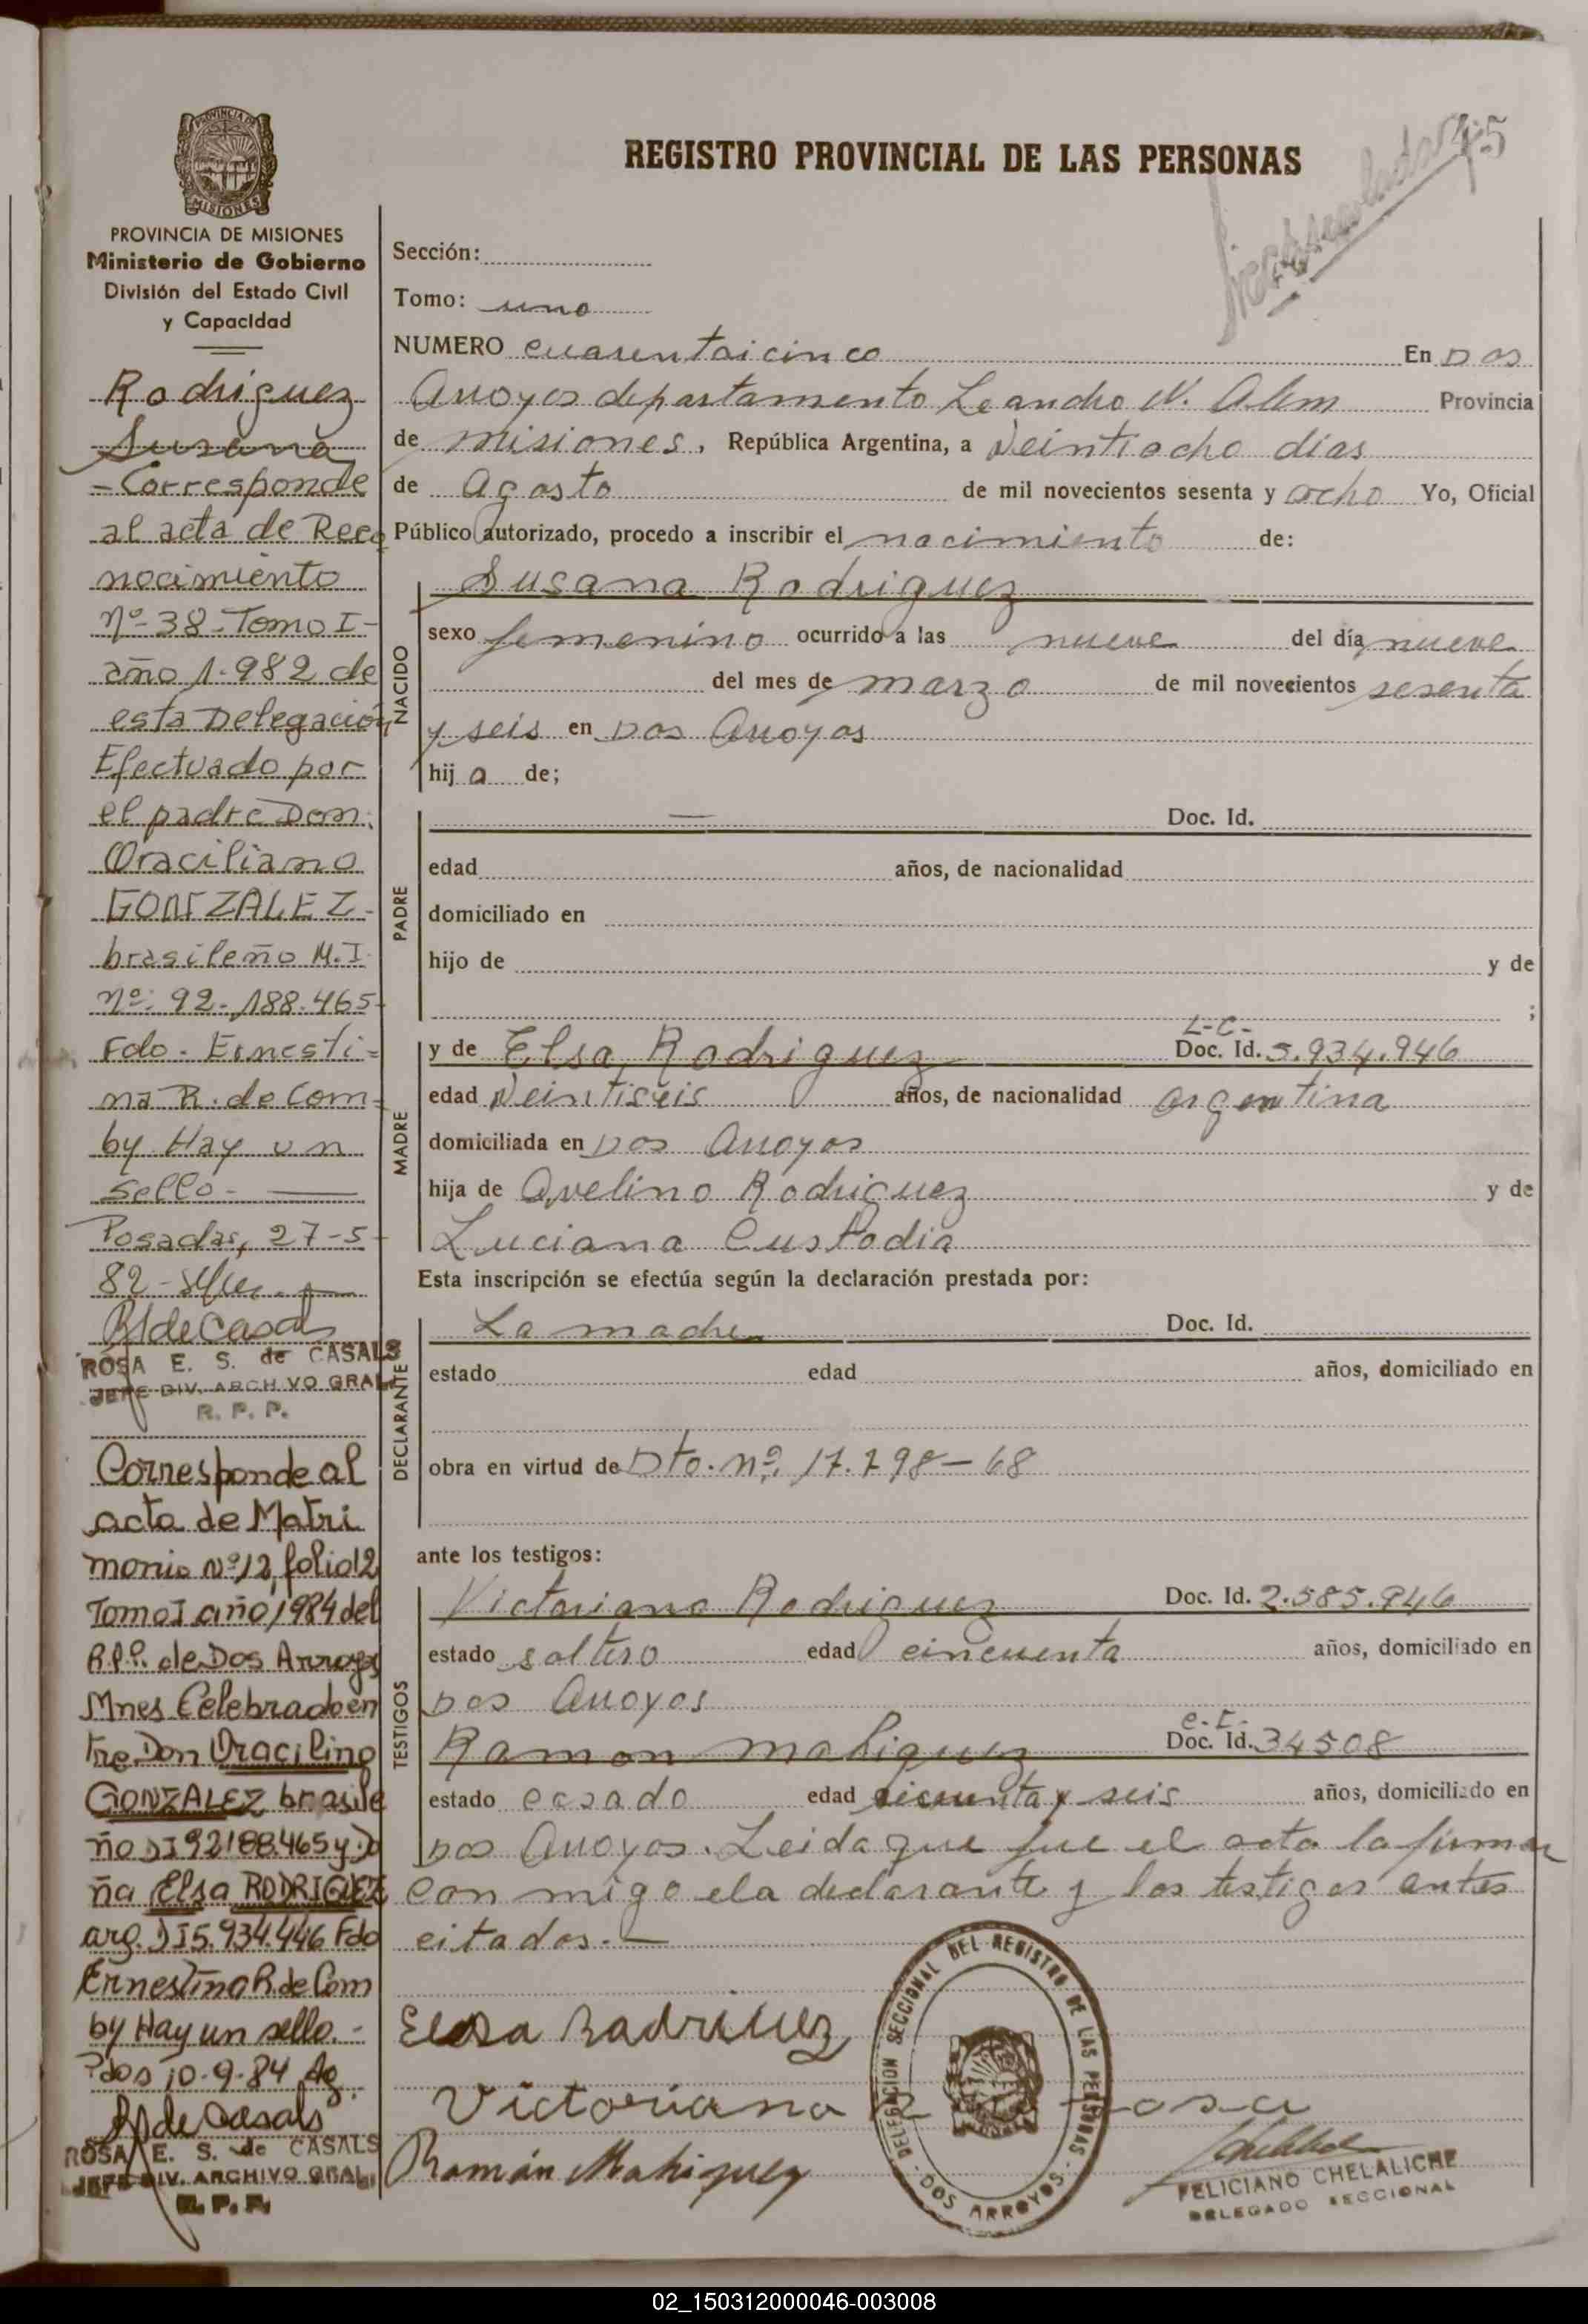 REGISTRO PROVINCIAL DE LAS PERSONAS
45
PROVINCIA DE
MISIONES
PROVINCIA DE MISIONES
Ministerio de Gobierno
División del Estado Civil
y Capacidad
Rodriguez
Susana
- Corresponde
al acta de Reco
nocimiento
Nº 38 - Tomo I -
año 1.982 de
esta Delegación
Efectuado por
el padre Don:
Oraciliano
GONZALEZ -
brasileño M.I
Nº: 92.188.465-
Fdo. Ernesti=
na R. de Com=
by Hay un
Sello -
Posadas, 27-5-
82 -
RSdeCasals
ROSA E. S. de CASALS
JEFE DIV. ARCHIVO GRAL.
R. P. P.
Corresponde al
acta de Matri
monio Nº 12, folio 12
Tomo I año 1984 del
R.P.P. de Dos Arroyos
Mnes Celebrado en
tre Don Oracilino
GONZALEZ brasile
ño DI 92188.465 y Do
ña Elsa RODRIGUEZ
arg. DI 5.934.446 Fdo
Ernestina R. de Com
by Hay un sello. -
Pdas 10-9-84
RSde Casals
ROSA E. S. de CASALS
JEFE DIV. ARCHIVO GRAL.
R. P. P.
Sección:
Tomo: uno
NUMERO cuarentaicinco En Dos
Arroyos departamento Leandro N. Alem Provincia
de misiones, República Argentina, a veintiocho dias
de Agosto de mil novecientos sesenta y ocho Yo, Oficial
Público autorizado, procedo a inscribir el nacimiento de:
NACIDO
Susana Rodriguez
sexo femenino ocurrido a las nueve del día nueve
del mes de marzo de mil novecientos sesenta
y seis en Dos Arroyos
hij a de;
PADRE
— Doc. Id.
edad años, de nacionalidad
domiciliado en
hijo de y de
;
MADRE
L-C-
y de Elsa Rodriguez Doc. Id. 5.934.946
edad veintiseis años, de nacionalidad argentina
domiciliada en Dos Arroyos
hija de Avelino Rodriguez y de
Luciana Custodia
Esta inscripción se efectúa según la declaración prestada por:
DECLARANTE
La madre Doc. Id.
estado edad años, domiciliado en
obra en virtud de Dto. nº. 17.798-68
ante los testigos:
TESTIGOS
Victoriano Rodriguez Doc. Id. 2.585.946
estado soltero edad cincuenta años, domiciliado en
Dos Arroyos
C.I.
Ramon Mahiquez Doc. Id. 34508
estado casado edad cicuenta y seis años, domiciliado en
Dos Arroyos. Leida que fue el acta la firman
con migo ela declarante y los testigos antes
citados.—
Elosa Radriuez
Victoriano
Román Mahiquez
DELEGACION SECCIONAL DEL REGISTRO DE LAS PERSONAS - DOS ARROYOS -
FELICIANO CHELALICHE
DELEGADO SECCIONAL
02_150312000046-003008